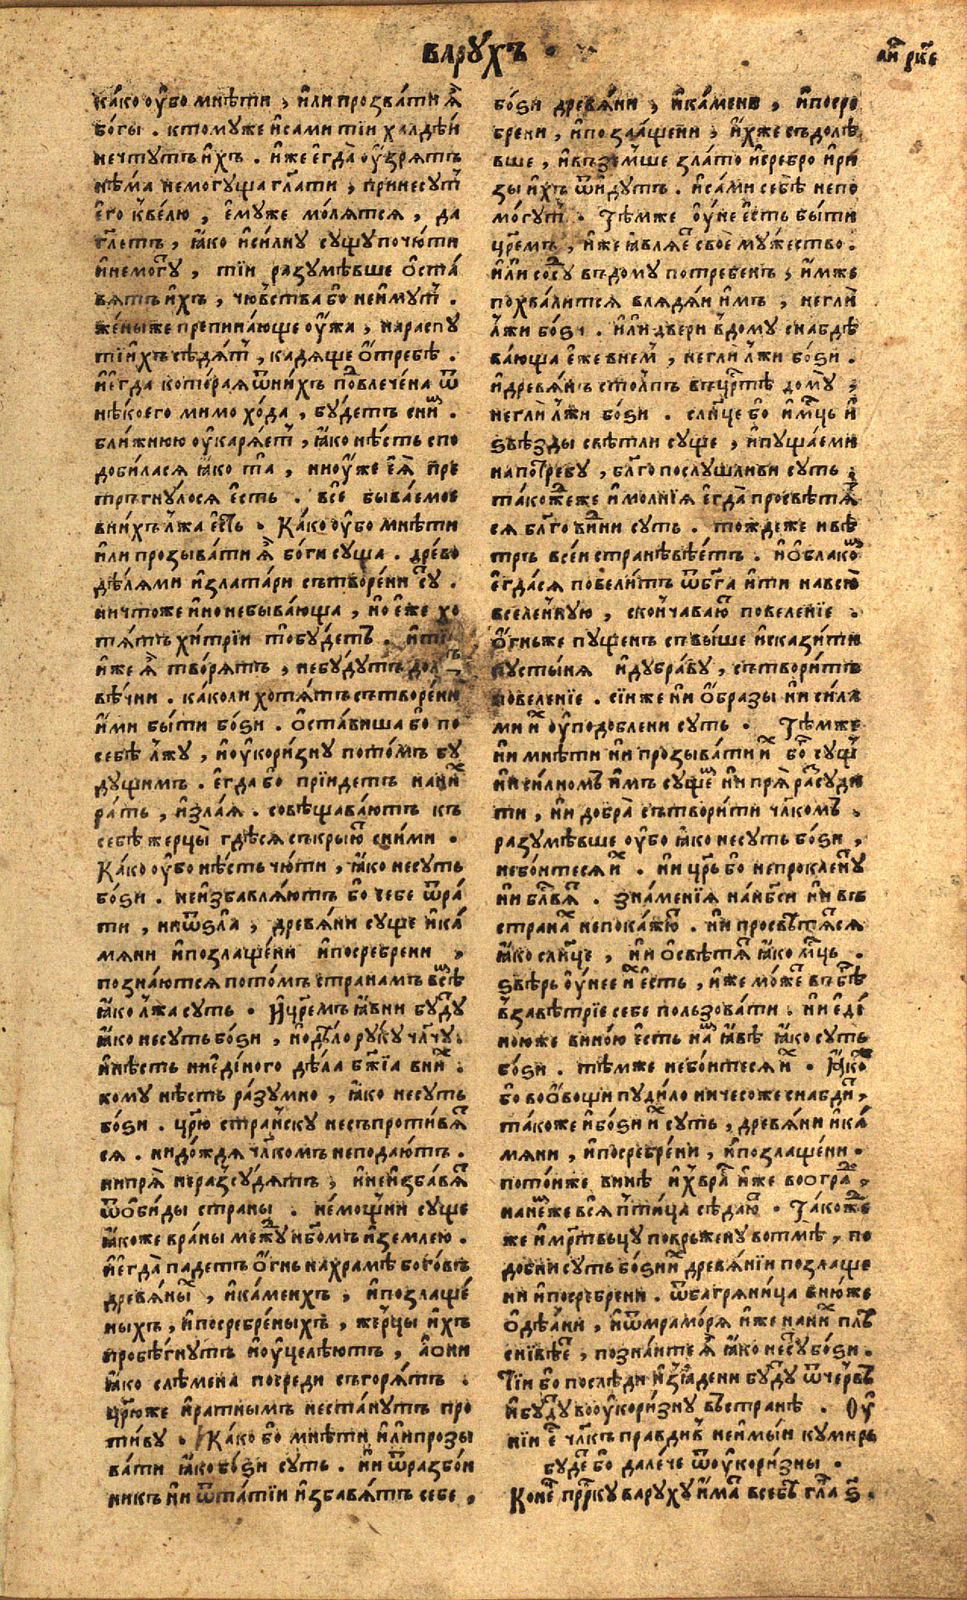 варꙋхъ
како ᲂу҆бо мнѣти , и҆ли прозвати ѧ҆̀
бо́гы . ктомꙋже и҆сами тїи халдѣи
нечтꙋтъ и҆хъ . и҆же є҆гда̀ ᲂу҆зрѧтъ
нѣ́ма немогꙋща гл҃ати , принесꙋтъ
є҆го̀ квє́лю , є҆мꙋже мо́лѧтсѧ , да
гл҃етъ , ꙗ҆́ко и҆си́лнꙋ сꙋщꙋ почю́ти
и҆немо́гꙋ , тїи разꙋмѣвше ѻ҆ста́
вѧтъ и҆хъ , чю́вства бо неи҆мꙋт .
же́ныже препина́юще ᲂу҆́жа , нараспꙋ
тїи҆хъ сѣдѧ́т , кадѧще ѻ҆́требѣ .
и҆є҆гда кото́раѧ ѿни́хъ повлече́на ѿ
нѣ́коего мимо хо́да , бꙋ́детъ сни́м .
бли́жнюю ᲂу҆карѧ́ет , ꙗ҆́ко нѣ́сть спо
добиласѧ ꙗ҆́ко та , ниᲂу҆́же є҆ѧ̀ пре
тръгнꙋлосѧ є҆сть . всѐ быва́емое
вни́хъ лжа є҆сть . Ка́ко ᲂу҆бо мнѣти
и҆ли прозыва́ти ѧ҆̀ бо́ги сꙋща . дре́во
дѣ́лѧми и҆злата́ри сътворе́ни сꙋ .
ничтоже и҆но небыва́юща , но є҆́же хо
тѧ́тъ хитрїи то бꙋ́детъ . и҆тї
и҆же ѧ҆̀ творѧ́тъ , небꙋдꙋтъ дол
вѣ́чни . ка́коли хотѧ́тъ сътворе́ни
и҆́ми бы́ти бо́ѕи . ѻ҆ста́виша бо по
себѣ̀ лжꙋ , и҆ᲂу҆кори́знꙋ пото́мъ бꙋ
дꙋщимъ . є҆гда бо прїи́детъ нани́х
ра́ть , и҆зла́ѧ . совѣщава́ютъ къ
себѣ̀ жерцы̀ гдѣ́сѧ съкры́ют сни́ми .
Ка́ко ᲂу҆бо нѣ́сть чю́ти , ꙗ҆́ко несꙋть
бо́ѕи . неи҆збавлѧ́ютъ бо себе ѿра́
ти , ниѿѕла̀ , древѧ́ни сꙋще и҆ка́
мѧни и҆позлаще́ни и҆посребрени ,
позна́ютсѧ пото́мъ странамъ всѣ
ꙗ҆́ко лжа сꙋть . И҆цр҃емъ ꙗ҆́вни бꙋдꙋ
ꙗ҆́ко несꙋть бо́ѕи , но дѣ́ло рꙋкꙋ чл҃чꙋ
и҆нѣ́сть ниеди́ного дѣ́ла бж҃їа вни́х .
комꙋ нѣ́сть ра́зꙋмно , ꙗ҆́ко несꙋть
бо́ѕи . цр҃ю стра́нскꙋ несъпроти́вѧт
сѧ . нидо́ждѧ чл҃комъ неподаю́тъ .
нипрѧ̀ нера́зсꙋдѧтъ , и҆неи҆зба́вѧт
ѿѻ҆би́ды страны̀ . не́мощни сꙋще
ꙗ҆́коже вра́ны межꙋ нб҃омъ и҆землею .
и҆є҆гда̀ падетъ ѻ҆́гнь нахра́мѣ бого́въ
древѧ́ных , и҆ка́меныхъ , и҆позлаще́
ныхъ , и҆посребре́ныхъ , же́рцы и҆хъ
пробѣ́гнꙋтъ и҆ᲂу҆целѣ́ютъ , а҆ѻни
ꙗ҆́ко слѣ́мена посреди съгорѧ́тъ .
цр҃юже и҆ра́тнымъ неста́нꙋтъ про
ти́вꙋ . Ка́ко бо мнѣти и҆ли прозы
ва́ти ꙗ҆́ко бо́ѕи сꙋть . ни ѿразбо́и
никъ ни ѿта́тїи и҆зба́вѧтъ себе ,
бо́ѕи древѧ́ни , и҆ка́мени , и҆посре
брени , и҆позлаще́ни , и҆́хже съдолѣ́
вше , и҆възе́мше зла́то и҆сребро и҆ри́
зы и҆хъ ѿи́дꙋтъ . и҆сами себѣ̀ непо
мо́гꙋт . Тѣ́мже ᲂу҆́не є҆́сть бы́ти
цр҃емъ , и҆же ꙗ҆влѧ́ет своѐ мꙋ́жество .
и҆лѝ сосꙋ́д въдомꙋ потребенъ , и҆́мже
похва́литсѧ влядѧи и҆мъ , негли
лжи бо́ѕи . и҆ли две́ри в̾домꙋ снабдѣ
ва́юща є҆же вне́м , негли лжи бо́ѕи .
и҆древѧ́нъ сто́лпъ въцр҃стѣ домꙋ̀ ,
неглѝ лжи бо́ѕи . слн҃це бо и҆мц҃ь и҆
ѕвѣзды свѣ́тли сꙋще , и҆пꙋща́еми
напотребꙋ , бл҃го послꙋшли́ви сꙋть .
та́кождеже и҆мо́лнїѧ є҆гда̀ просвѣтѧ́т
сѧ бл҃го ви́дни сꙋть . то́ждеже и҆вѣ́
тръ все́и странѣ вѣ́етъ . и҆ѻ҆́блаком
є҆гда́сѧ повели́тъ ѿбг҃а и҆ти навсю̀
вселе́ннꙋю , сконча́ваю повеле́нїе .
ѻ҆́гньже пꙋще́нъ съвы́ше и҆скази́ти
пꙋсты́нѧ и҆дꙋбра́вꙋ , сътвори́тъ
повеле́нїе . сїи́же ни ѻ҆́бразы ни си́ла
ми и҆х ᲂу҆подо́блени сꙋть . Тѣ́мже
ни мнѣти ни прозыва́ти и҆х бог сꙋщ
ни си́лномъ и҆мъ сꙋщем ни прѧ̀ ра́ссꙋди
ти , ни добра̀ сътвори́ти чл҃комъ .
разꙋмѣ́вше ᲂу҆бо ꙗ҆́ко несꙋть бо́ѕи ,
небо́итесѧ и҆х . ни цр҃ѧ бо непрокленꙋ
ни бл҃вѧт . зна́менїѧ нанб҃си ни въ
стра́нах непока́жют . ни просвѣтѧ́тсѧ
ꙗ҆́ко слн҃це , ни ѻ҆свѣтѧ́т ꙗ҆́ко мц҃ь .
ѕвѣ́рь ᲂу҆́нее и҆х є҆́сть , и҆же мо́жет въбѣ́г
взавѣ́трїе себе по́льзовати . ни є҆ди́
ноюже вино́ю є҆́сть нам ꙗ҆́вѣ ꙗ҆́ко сꙋть
бо́ѕи . тѣ́мже небо́итесѧ и҆х . Ꙗ҆́коже
бо воѻ҆́вощи пꙋди́ло ничесо́же снабди́т ,
та́коже и҆бо́ѕи и҆х сꙋть , древѧ́ни и҆ка́
мѧни , и҆посребре́ни , и҆позлаще́ни .
пото́мже винѣ̀ и҆хвра́ст и҆же вооград ,
нанемже всѧ̀ птица сѣда́ет . Та́кожде
же и҆мр҃твьцꙋ поврьженꙋ вотмѣ̀ , по
до́бни сꙋть бо́ѕи и҆х древѧ́нїи позлаще
ни и҆посребрени . ѿбагрѧни́ца внюже
ѻ҆дѣ́ани , и҆ѿмрамо́рѧ и҆же нани́х плѣ
снївѣ́ет , позна́ите ѧ҆̀ ꙗ҆́ко несꙋ бо́ѕи .
Тїи бо послѣди и҆з̾ѧдени бꙋдꙋ ѿче́рвъ
и҆бꙋдꙋ воᲂу҆кори́знꙋ въстра́нѣ . Оу҆
нїи є҆ чл҃къ пра́вдив неимы́и кꙋми́ръ
бꙋдет бо дале́че ѿᲂу҆кори́зны .
Коне́ц пр҃ркꙋ варꙋхꙋ и҆ма́т всебѣ̀ гла ѕ҃ .